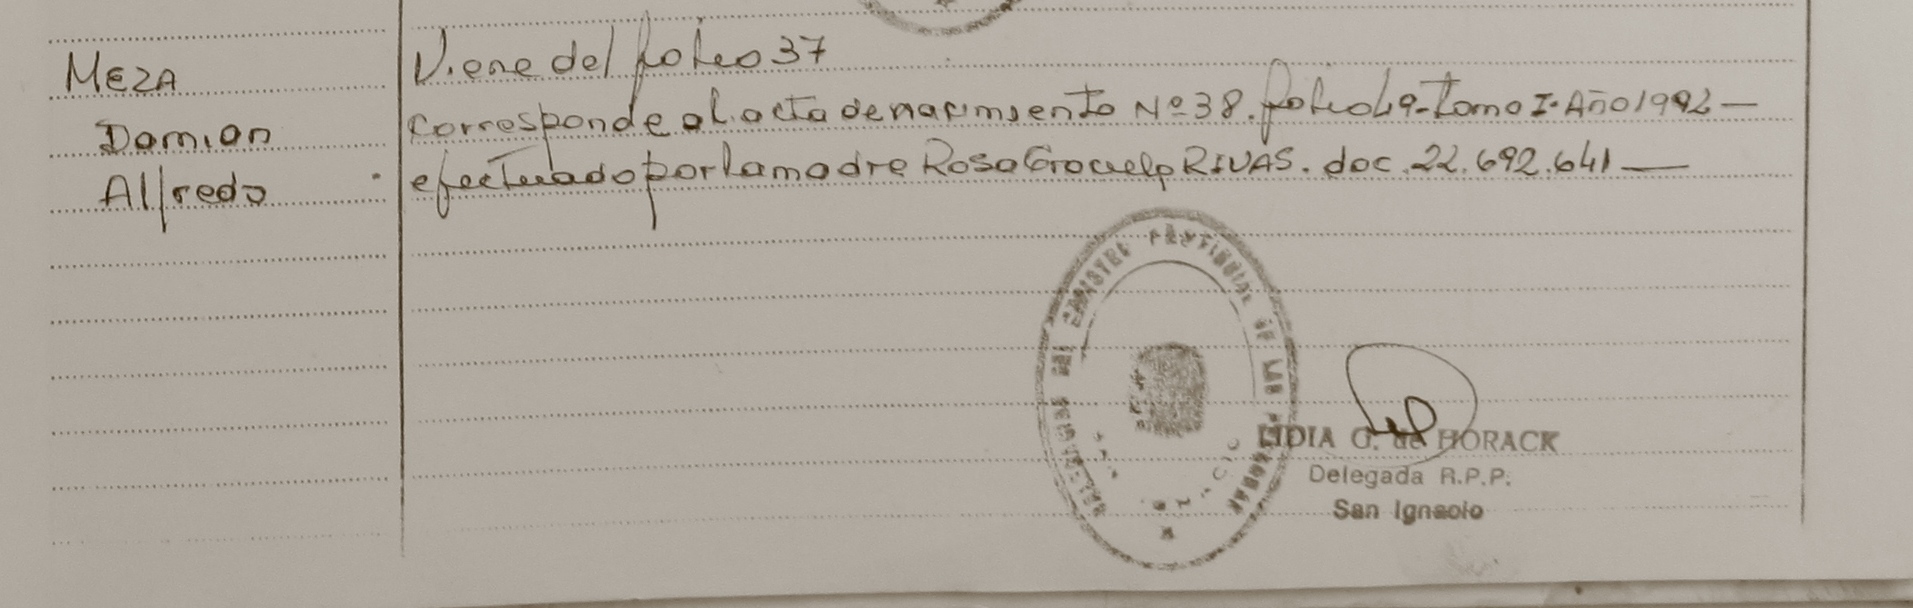 MEZA
Damian
Alfredo
Viene del folio 37
Corresponde al acta de nacimiento Nº 38. folio 49-Tomo I. Año 1992 —
efectuado por la madre Rosa Graciela RIVAS. doc. 22.692.641 —
DELEGACION DEL REGISTRO PROVINCIAL DE LAS PERSONAS
LIDIA G. de HORACK
Delegada R.P.P.
San Ignacio